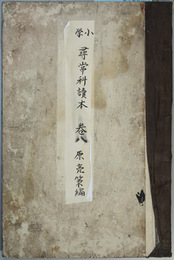 小学
尋常科讀本 巻八 原亮策編